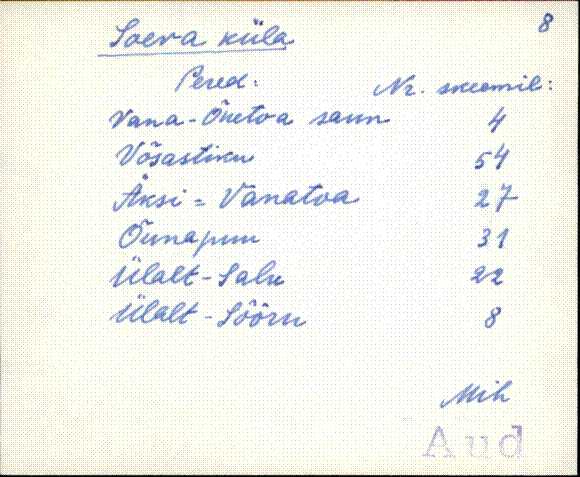 8
Soeva küla
Pered: Nr. skeemil:
Vana-Õnetoa saun 4
Võsastiku 54
Äksi = Vanatoa 27
Õunapuu 31
Ülalt-Salu 22
Ülalt-Sööru 8
Mih
Aud